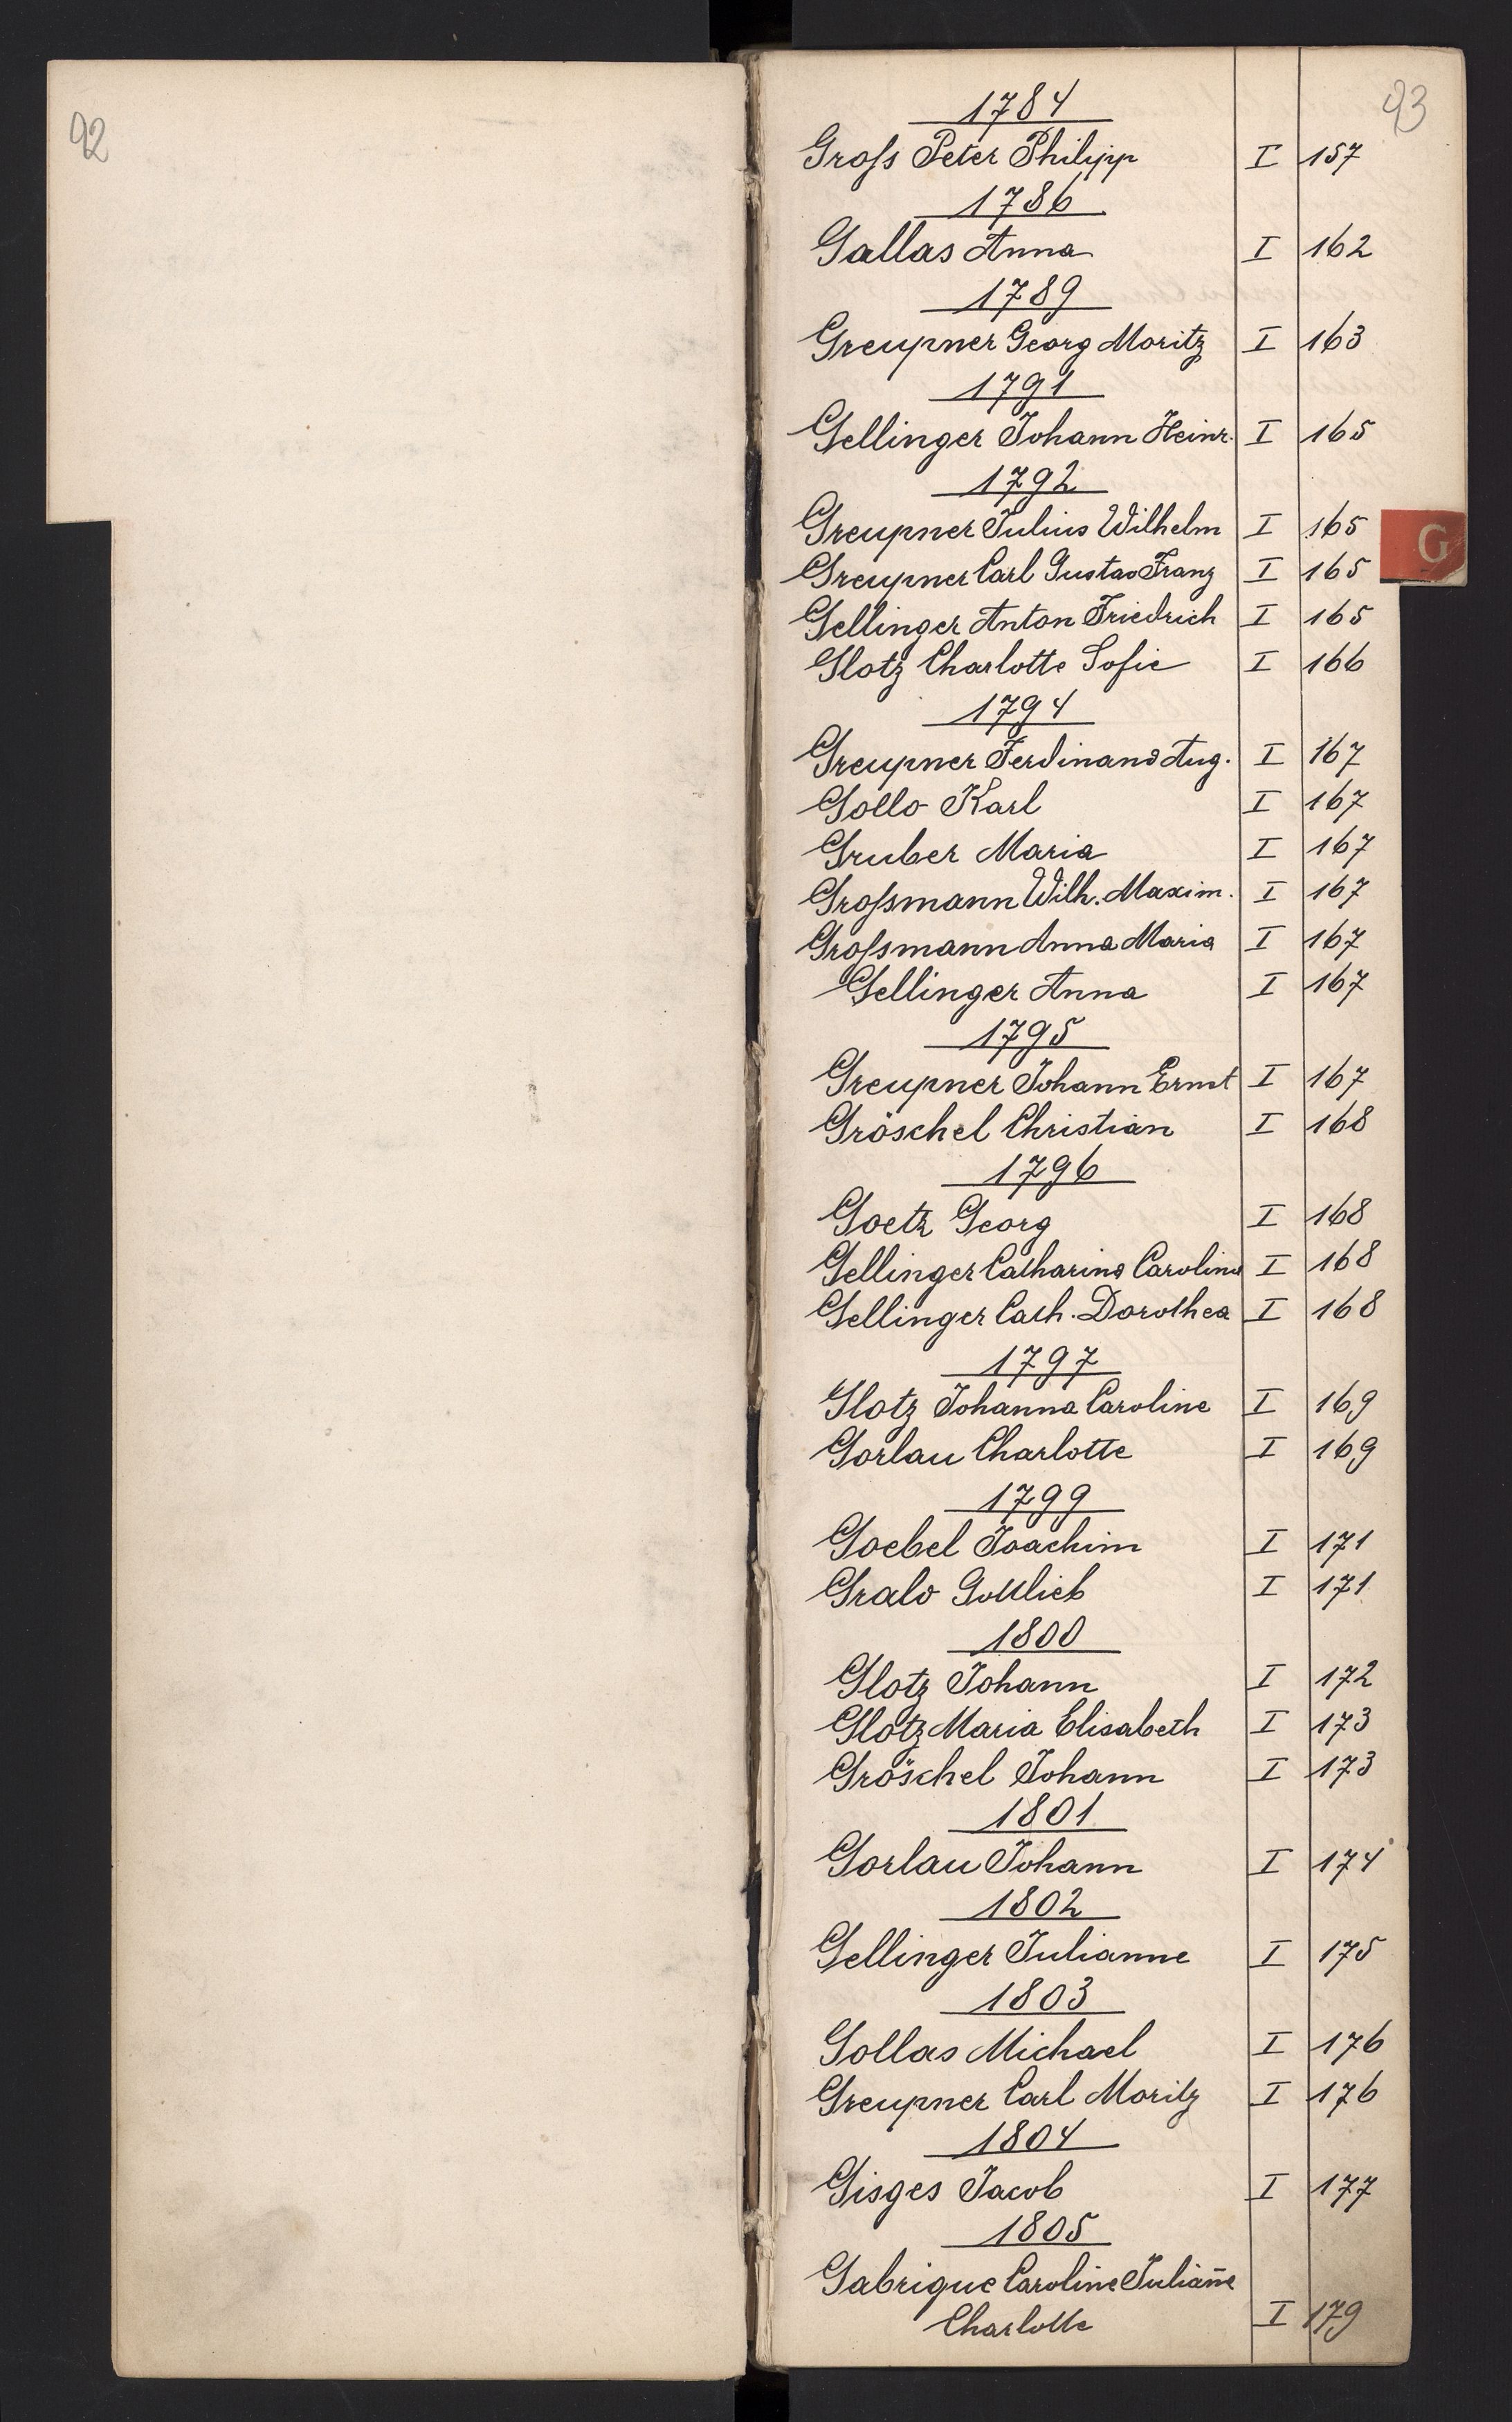 92
93
1784
Groſs Peter Philipp I 157
1786
Gallas Anna I 162
1789
Greupner Georg Moritz I 163
1791
Gellinger Johann Heinr. I 165
1792
Greupner Julius Wilhelm I 165
G
Greupner Carl Gustav Franz I 165
Gellinger Anton Friedrich I 165
Glotz Charlotte Sofie I 166
1794
Greupner Ferdinand Aug. I 167
Gollo Karl I 167
Gruber Maria I 167
Groſsmann Wilh. Maxim. I 167
Groſsmann Anna Maria I 167
Gellinger Anna I 167
1795
Greupner Johann Ernst I 167
Gröschel Christian I 168
1796
Goetz Georg I 168
Gellinger Catharina Carolina I 168
Gellinger Cath. Dorothea I 168
1797
Glotz Johanna Caroline I 169
Gorlau Charlotte I 169
1799
Goebel Joachim I 171
Gralo Gottlieb I 171
1800
Glotz Johann I 172
Glotz Maria Elisabeth I 173
Gröschel Johann I 173
1801
Gorlau Johann I 174
1802
Gellinger Julianne I 175
1803
Gollas Michael I 176
Greupner Carl Moritz I 176
1804
Gisges Jacob I 177
1805
Gabrique Caroline Julian̄e
Charlotte I 179